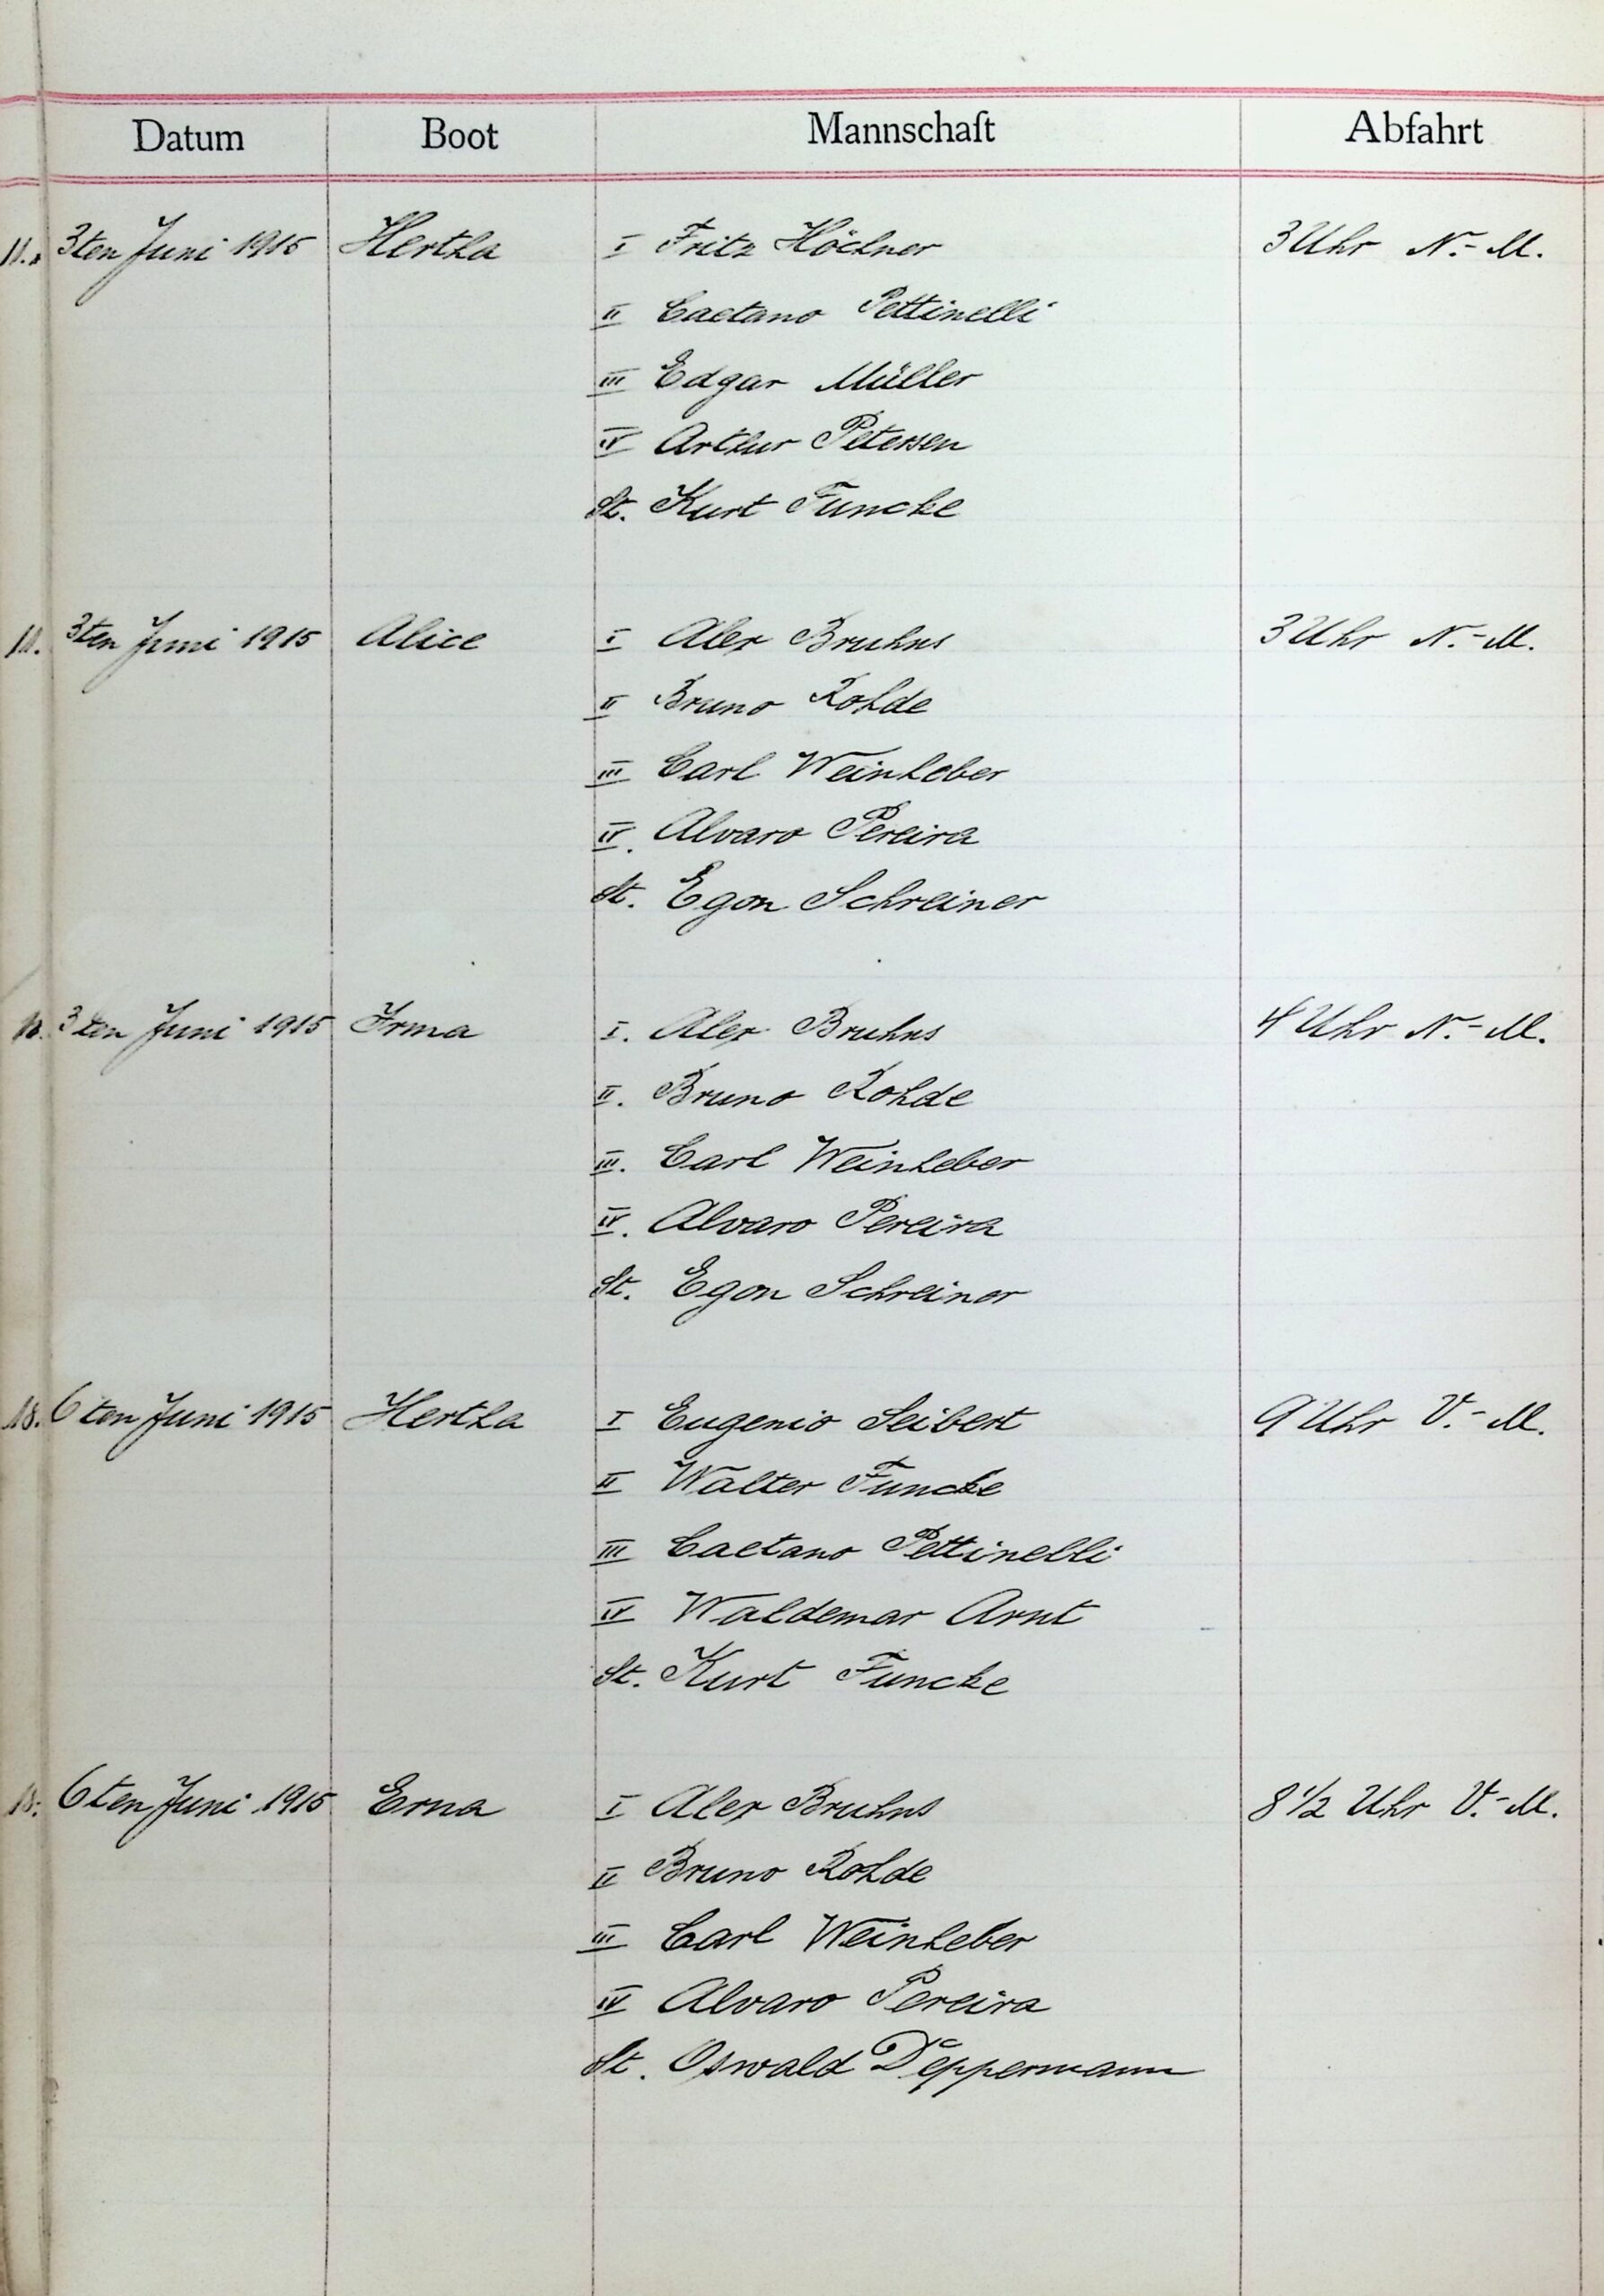 Datum Boot Mannschaft Abfahrt
3ten Juni 1915 Hertha I Fritz Höckner 3 Uhr N.-M.
II Caetano Pettinelli
III Edgar Müller
IV Arthur Petersen
St. Kurt Funcke
3ten Juni 1915 Alice I Alex Bruhns 3 Uhr N.-M.
II Bruno Rohde
III Carl Weinheber
IV. Alvaro Pereira
St. Egon Schreiner
3ten Juni 1915 Irma I. Alex Bruhns 4 Uhr N.-M.
II. Bruno Rohde
III. Carl Weinheber
IV. Alvaro Pereira
St. Egon Schreiner
6ten Juni 1915 Hertha I Eugenio Seibert 9 Uhr V.-M.
II Walter Funcke
III Caetano Pettinelli
IV Waldemar Arnt
St. Kurt Funcke
6ten Juni 1915 Erna I Alex Bruhns 8 1/2 Uhr V.-M.
II Bruno Rohde
III Carl Weinheber
IV Alvaro Pereira
St. Oswald Deppermann